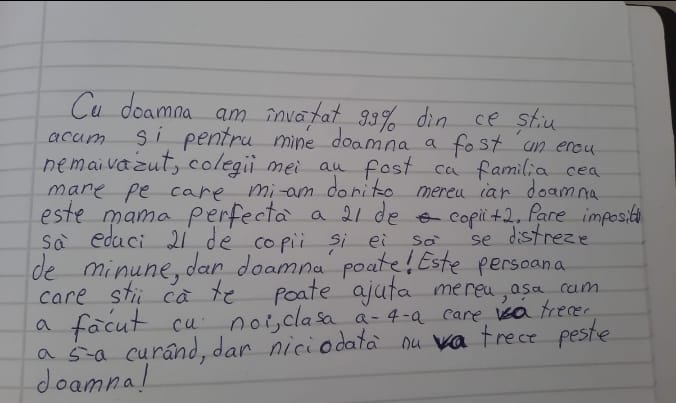 Cu doamna am învățat 99% din ce știu
acum și pentru mine doamna a fost un erou
nemaivăzut, colegii mei au fost ca familia cea
mare pe care mi-am dorito mereu iar doamna
este mama perfectă a 21 de copii+2. Pare imposibil
să educi 21 de copii și ei să se distreze
de minune, dar doamna poate! Este persoana
care știi că te poate ajuta mereu, așa cum
a făcut cu noi, clasa a-4-a care va trece
a 5-a curând, dar niciodată nu va trece peste
doamna!